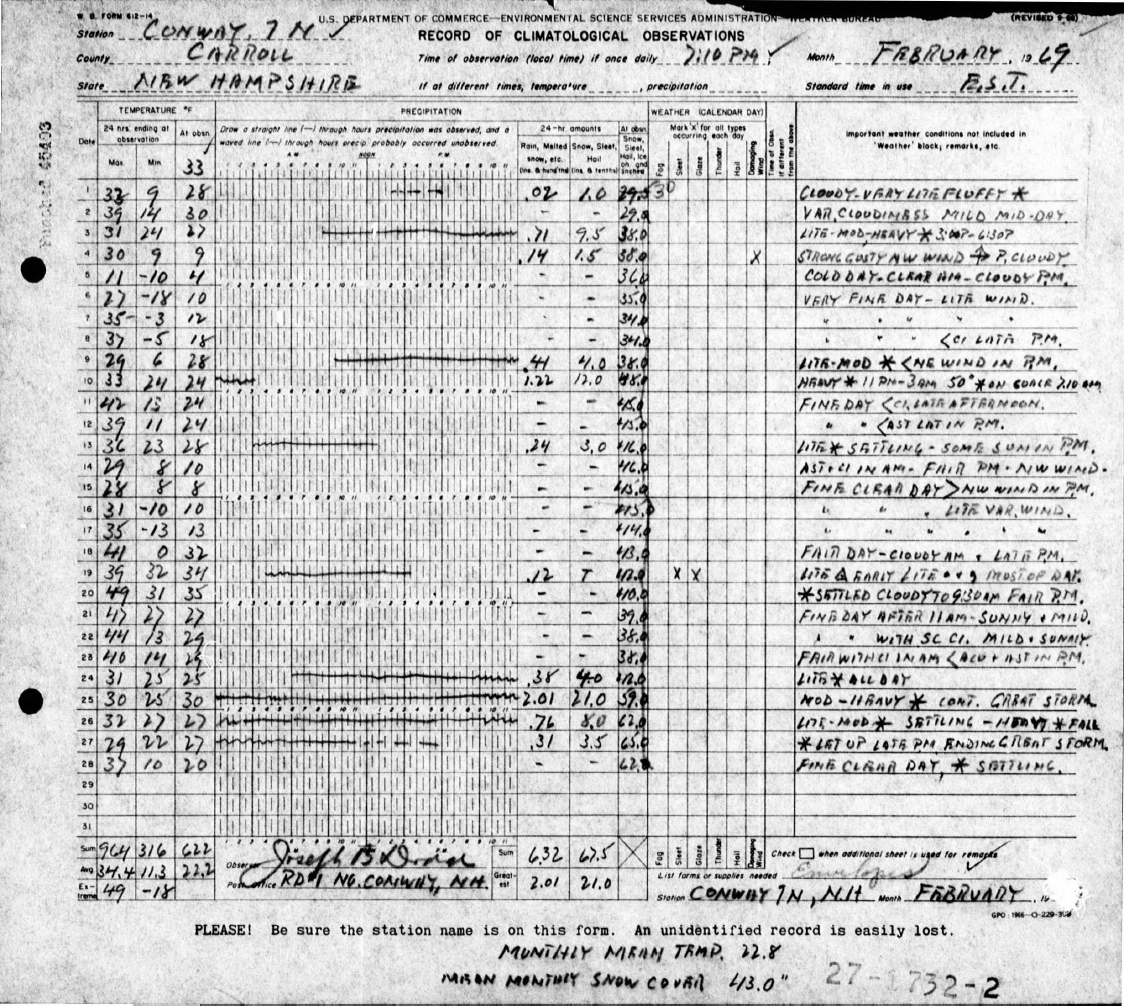 W. B. FORM 612-14
U.S. DEPARTMENT OF COMMERCE—ENVIRONMENTAL SCIENCE SERVICES ADMINISTRATION—WEATHER BUREAU (REVISED
Station CONWAY, 7 N RECORD OF CLIMATOLOGICAL OBSERVATIONS
County CARROLL Time of observation (local time) if once daily 7:10 PM Month FEBRUARY, 1969
State NEW HAMPSHIRE If at different times, temperature , precipitation Standard time in use E.S.T.
TEMPERATURE °F PRECIPITATION WEATHER (CALENDAR DAY)
Date 24 hrs. ending at observation Max. Min. At obsn. 33
Draw a straight line (—) through hours precipitation was observed, and a waved line (~) through hours precip. probably occurred unobserved.
A M NOON P M
24-hr. amounts Rain, Melted snow, etc. (Ins. & hundths) Snow, Sleet, Hail (Ins. & tenths)
At obsn. Snow, Sleet, Hail, Ice on gnd inches
Mark 'X' for all types occurring each day Fog Sleet Glaze Thunder Hail Damaging Wind
Time of Obsn. if different from the above
Important weather conditions not included in 'Weather' block; remarks, etc.
1 33 9 28 .02 1.0 29.5 30 CLOUDY-VERY LITE FLUFFY *
2 39 14 30 - - 29.0 VAR. CLOUDINESS MILD MID-DAY
3 31 24 27 .71 9.5 38.0 LITE-MOD-HEAVY * 3:00P-6:30P
4 30 9 9 .14 1.5 38.0 X STRONG GUSTY NW WIND P. CLOUDY
5 11 -10 4 36.0 COLD DAY-CLEAR AM-CLOUDY P.M.
6 27 -18 10 - - 35.0 VERY FINE DAY- LITE WIND.
7 35 -3 12 - - 34.0 " " " "
8 37 -5 18 - - 34.0 " " " <CI LATE P.M.
9 29 6 28 .41 4.0 38.0 LITE-MOD * <NE WIND IN P.M.
10 33 24 24 1.22 12.0 48.0 HEAVY * 11 PM-3AM 50" * ON 7:10 AM
11 42 15 24 - - 45.0 FINE DAY <CI. LATE AFTERNOON.
12 39 11 24 - - 45.0 " " <AST LAT IN P.M.
13 36 23 28 .24 3.0 46.0 LITE * SETTLING - SOME SUN IN P.M.
14 29 8 10 - - 46.0 AST+CI IN AM- FAIR PM - NW WIND.
15 28 8 8 - - 45.0 FINE CLEAR DAY >NW WIND IN P.M.
16 31 -10 10 - - 45.0 " " " LITE VAR. WIND.
17 35 -13 13 - - 44.0 " " " " "
18 41 0 32 - - 43.0 FAIR DAY-CLOUDY AM + LATE P.M.
19 39 32 34 .12 T 42.0 X X LITE EARLY LITE MOST OF DAY.
20 49 31 35 - - 40.0 *SETTLED CLOUDY TO 9:30AM FAIR P.M.
21 47 27 27 - - 39.0 FINE DAY AFTER 11AM-SUNNY + MILD.
22 44 13 29 - - 38.0 " " WITH SC CI. MILD + SUNNY
23 40 14 29 - - 38.0 FAIR WITH CI IN AM <ACU + AST IN P.M.
24 31 25 25 .38 4.0 42.0 LITE * ALL DAY
25 30 25 30 2.01 21.0 59.0 MOD-HEAVY * CONT. GREAT STORM
26 32 27 27 .76 8.0 62.0 LITE-MOD * SETTLING - HEAVY * FALL
27 29 22 27 .31 3.5 65.0 * LET UP LATE PM ENDING GREAT STORM.
28 37 10 20 - - 62.0 FINE CLEAR DAY, * SETTLING.
29
30
31
Sum 964 316 622 Observer Joseph B Sum 6.32 67.5 Fog Sleet Glaze Thunder Hail Damaging Wind Check when additional sheet is used for remarks
Avg 34.4 11.3 22.2 List forms or supplies needed Envelopes
Extreme 49 -18 Post office RD#1 NO. CONWAY, N.H. Greatest 2.01 21.0 Station CONWAY 7N, N.H Month FEBRUARY, 19
GPO : 1966-O-229-
PLEASE! Be sure the station name is on this form. An unidentified record is easily lost.
MONTHLY MEAN TEMP. 22.8
MEAN MONTHLY SNOW COVER 43.0"
27-1732-2